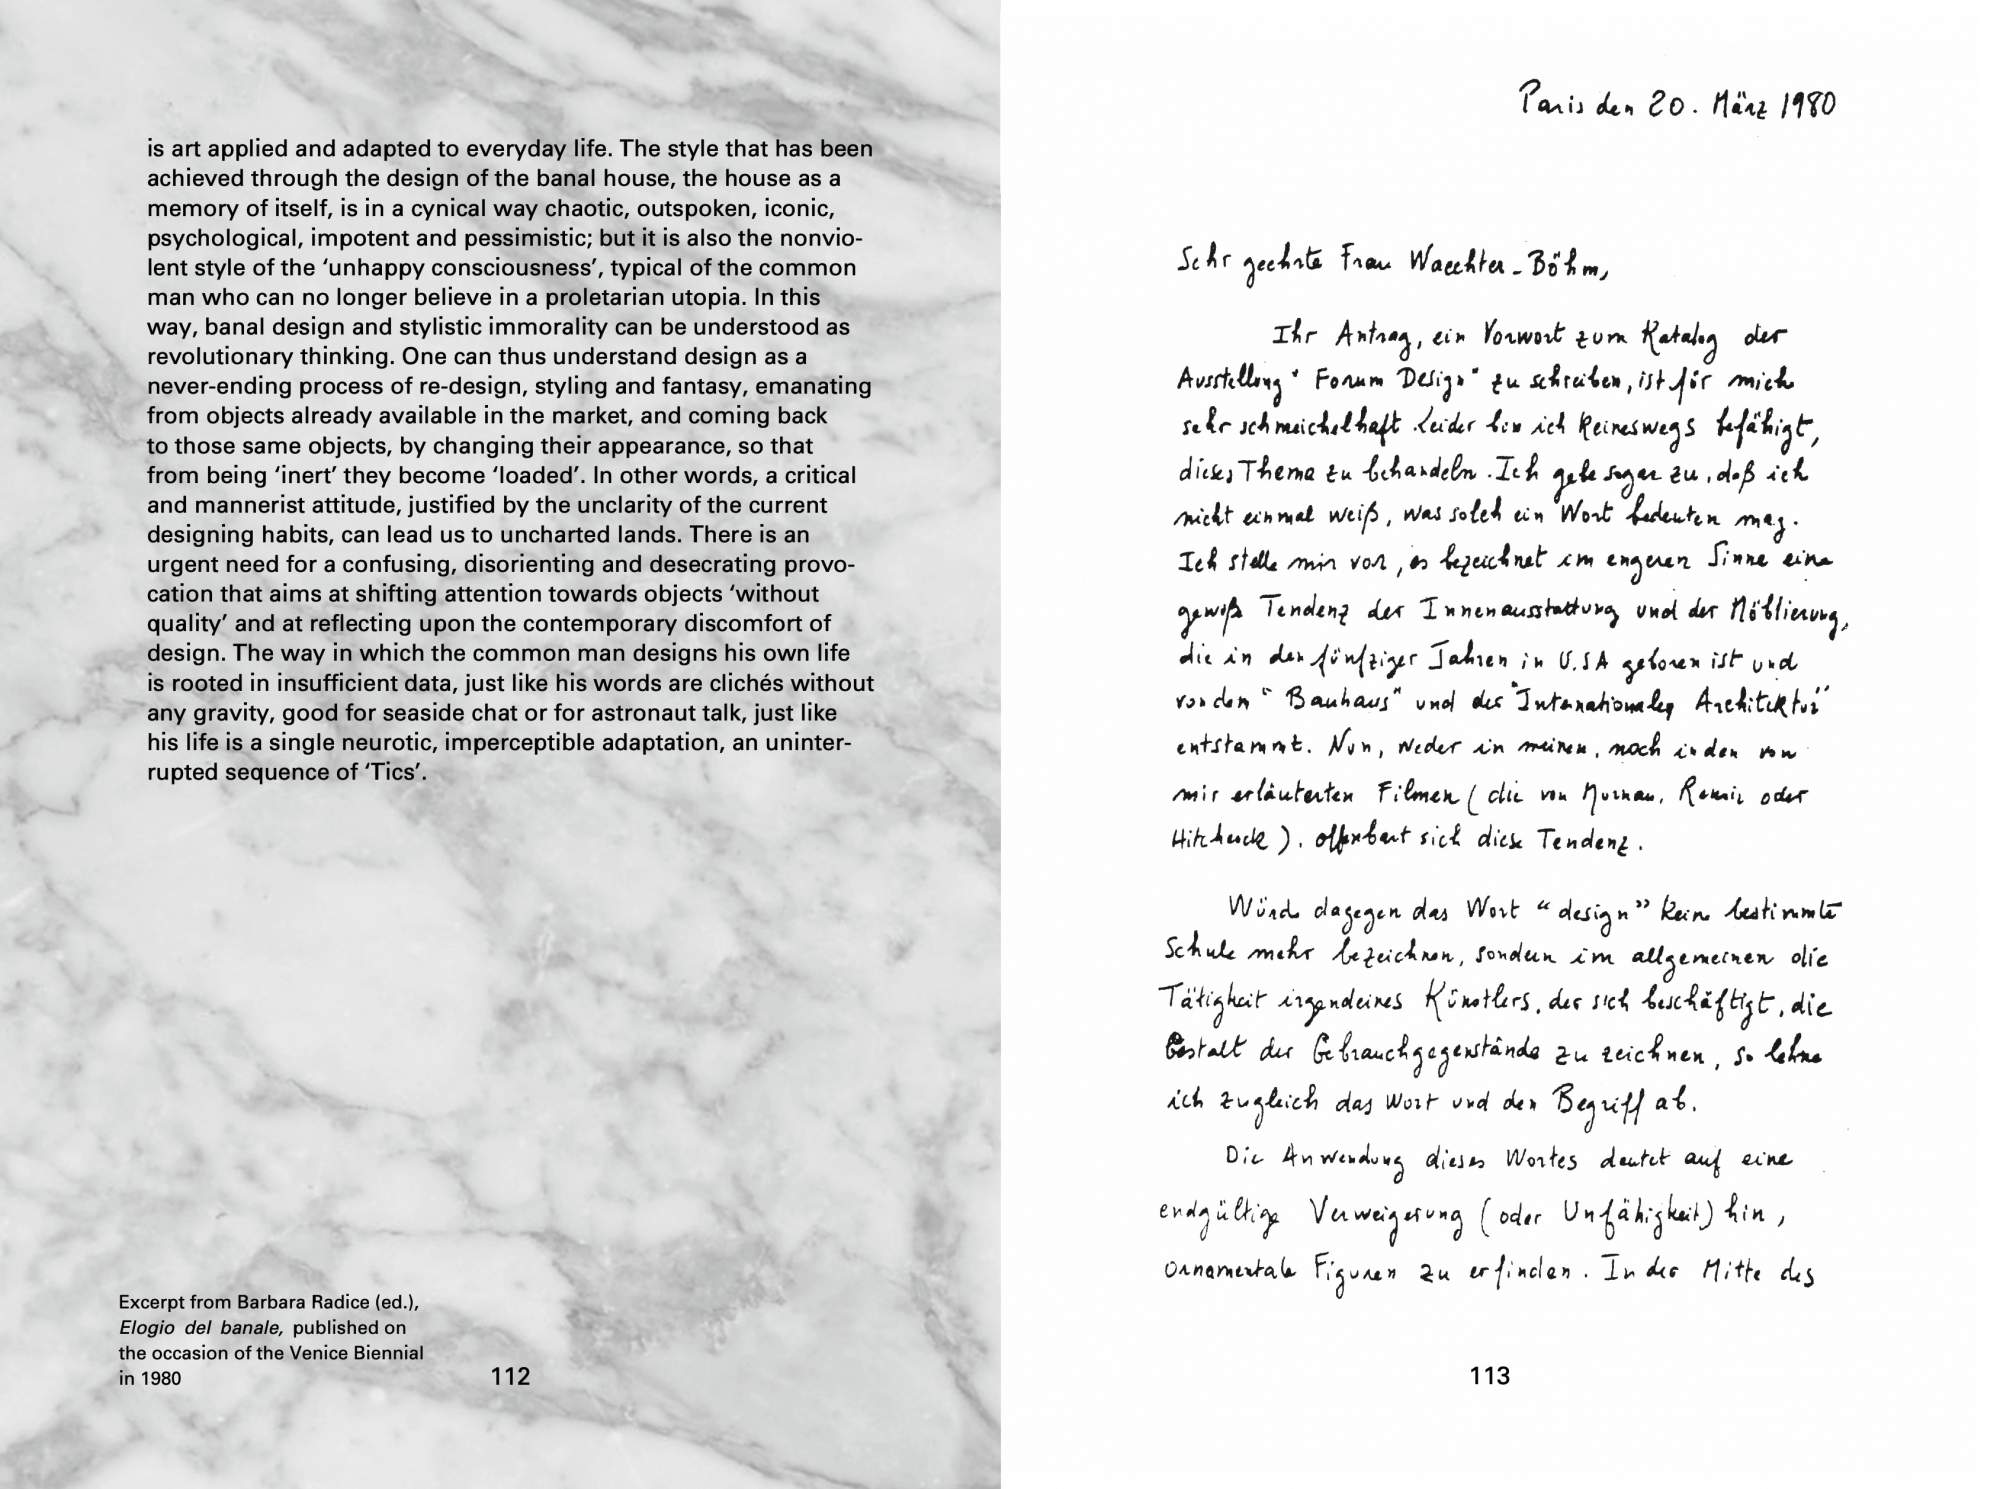 is art applied and adapted to everyday life. The style that has been
achieved through the design of the banal house, the house as a
memory of itself, is in a cynical way chaotic, outspoken, iconic,
psychological, impotent and pessimistic; but it is also the nonvio-
lent style of the ‘unhappy consciousness’, typical of the common
man who can no longer believe in a proletarian utopia. In this
way, banal design and stylistic immorality can be understood as
revolutionary thinking. One can thus understand design as a
never-ending process of re-design, styling and fantasy, emanating
from objects already available in the market, and coming back
to those same objects, by changing their appearance, so that
from being ‘inert’ they become ‘loaded’. In other words, a critical
and mannerist attitude, justified by the unclarity of the current
designing habits, can lead us to uncharted lands. There is an
urgent need for a confusing, disorienting and desecrating provo-
cation that aims at shifting attention towards objects ‘without
quality’ and at reflecting upon the contemporary discomfort of
design. The way in which the common man designs his own life
is rooted in insufficient data, just like his words are clichés without
any gravity, good for seaside chat or for astronaut talk, just like
his life is a single neurotic, imperceptible adaptation, an uninter-
rupted sequence of ‘Tics’.
Excerpt from Barbara Radice (ed.),
Elogio del banale, published on
the occasion of the Venice Biennial
in 1980
112
Paris den 20. März 1980
Sehr geehrte Frau Waechter-Böhm,
Ihr Antrag, ein Vorwort zum Katalog der
Ausstellung "Forum Design" zu schreiben, ist für mich
sehr schmeichelhaft. Leider bin ich keineswegs befähigt,
dieses Thema zu behandeln. Ich gebe sogar zu, daß ich
nicht einmal weiß, was solch ein Wort bedeuten mag.
Ich stelle mir vor, es bezeichnet im engeren Sinne eine
gewiße Tendenz der Innenausstattung und der Möblierung,
die in den fünfziger Jahren in U.S.A geboren ist und
von dem "Bauhaus" und der "Internationalen Architektur"
entstammt. Nun, weder in meinen, noch in den von
mir erläuterten Filmen (die von Murnau, Renoir oder
Hitchcock), offenbart sich diese Tendenz.
Würde dagegen das Wort "design" keine bestimmte
Schule mehr bezeichnen, sondern im allgemeinen die
Tätigkeit irgendeines Künstlers, der sich beschäftigt, die
Gestalt der Gebrauchgegenstände zu zeichnen, so lehne
ich zugleich das Wort und den Begriff ab.
Die Anwendung dieses Wortes deutet auf eine
endgültige Verweigerung (oder Unfähigkeit) hin,
ornamentale Figuren zu erfinden. In der Mitte des
113